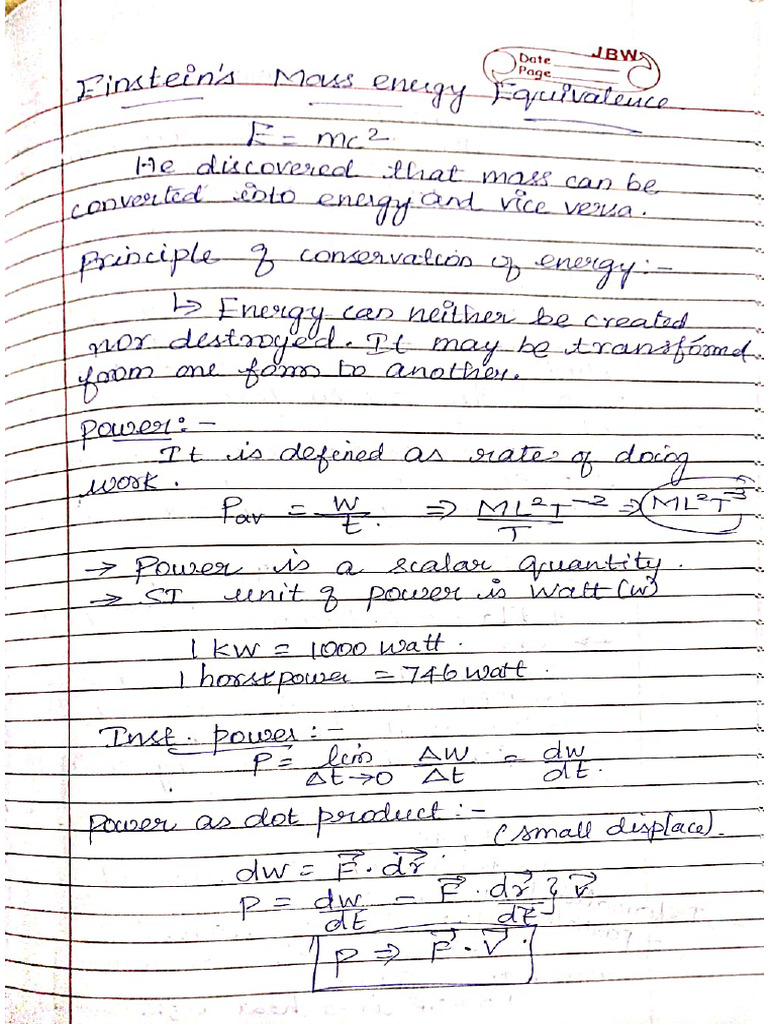 JBW
Date
Page
Einstein's Mass energy Equivalence
E = mc²
He discovered that mass can be
converted into energy and vice versa.
Principle of conservation of energy:-
↳ Energy can neither be created
nor destroyed. It may be transformed
from one form to another.
Power:-
It is defined as rate of doing
work.
Pav = W/t. ⇒ ML²T⁻²/T ⇒ ML²T⁻³
→ Power is a scalar quantity.
→ SI unit of power is Watt (w)
1 kw = 1000 watt.
1 horsepower = 746 watt.
Inst. power:-
P = lim Δt→0 ΔW/Δt = dw/dt.
Power as dot product:-
(small displace).
dw = F⃗ · dr⃗.
P = dw/dt – F⃗ · dr⃗/dt } v⃗
P ⇒ F⃗ · V⃗.